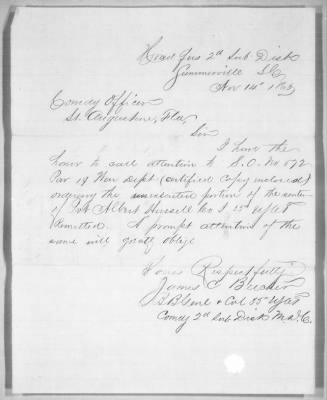 Head Qrs 2d Sub Dist
Summerville S.C.
Nov 14th 1865
Comdg Officer
St. Augustine, Fla,
Sir
I have the
honor to call attention to S.O. No 572
Par 19 War Dept (certified copy inclosed)
ordering the unexecuted portion of the sentence
of Pvt Albert Co I
remitted. A prompt attention of the
same will greatly oblige
Yours Respectfully
James C Beecher
Bt B Genl & Col
Comdg 2d Sub Dist M.D.C.